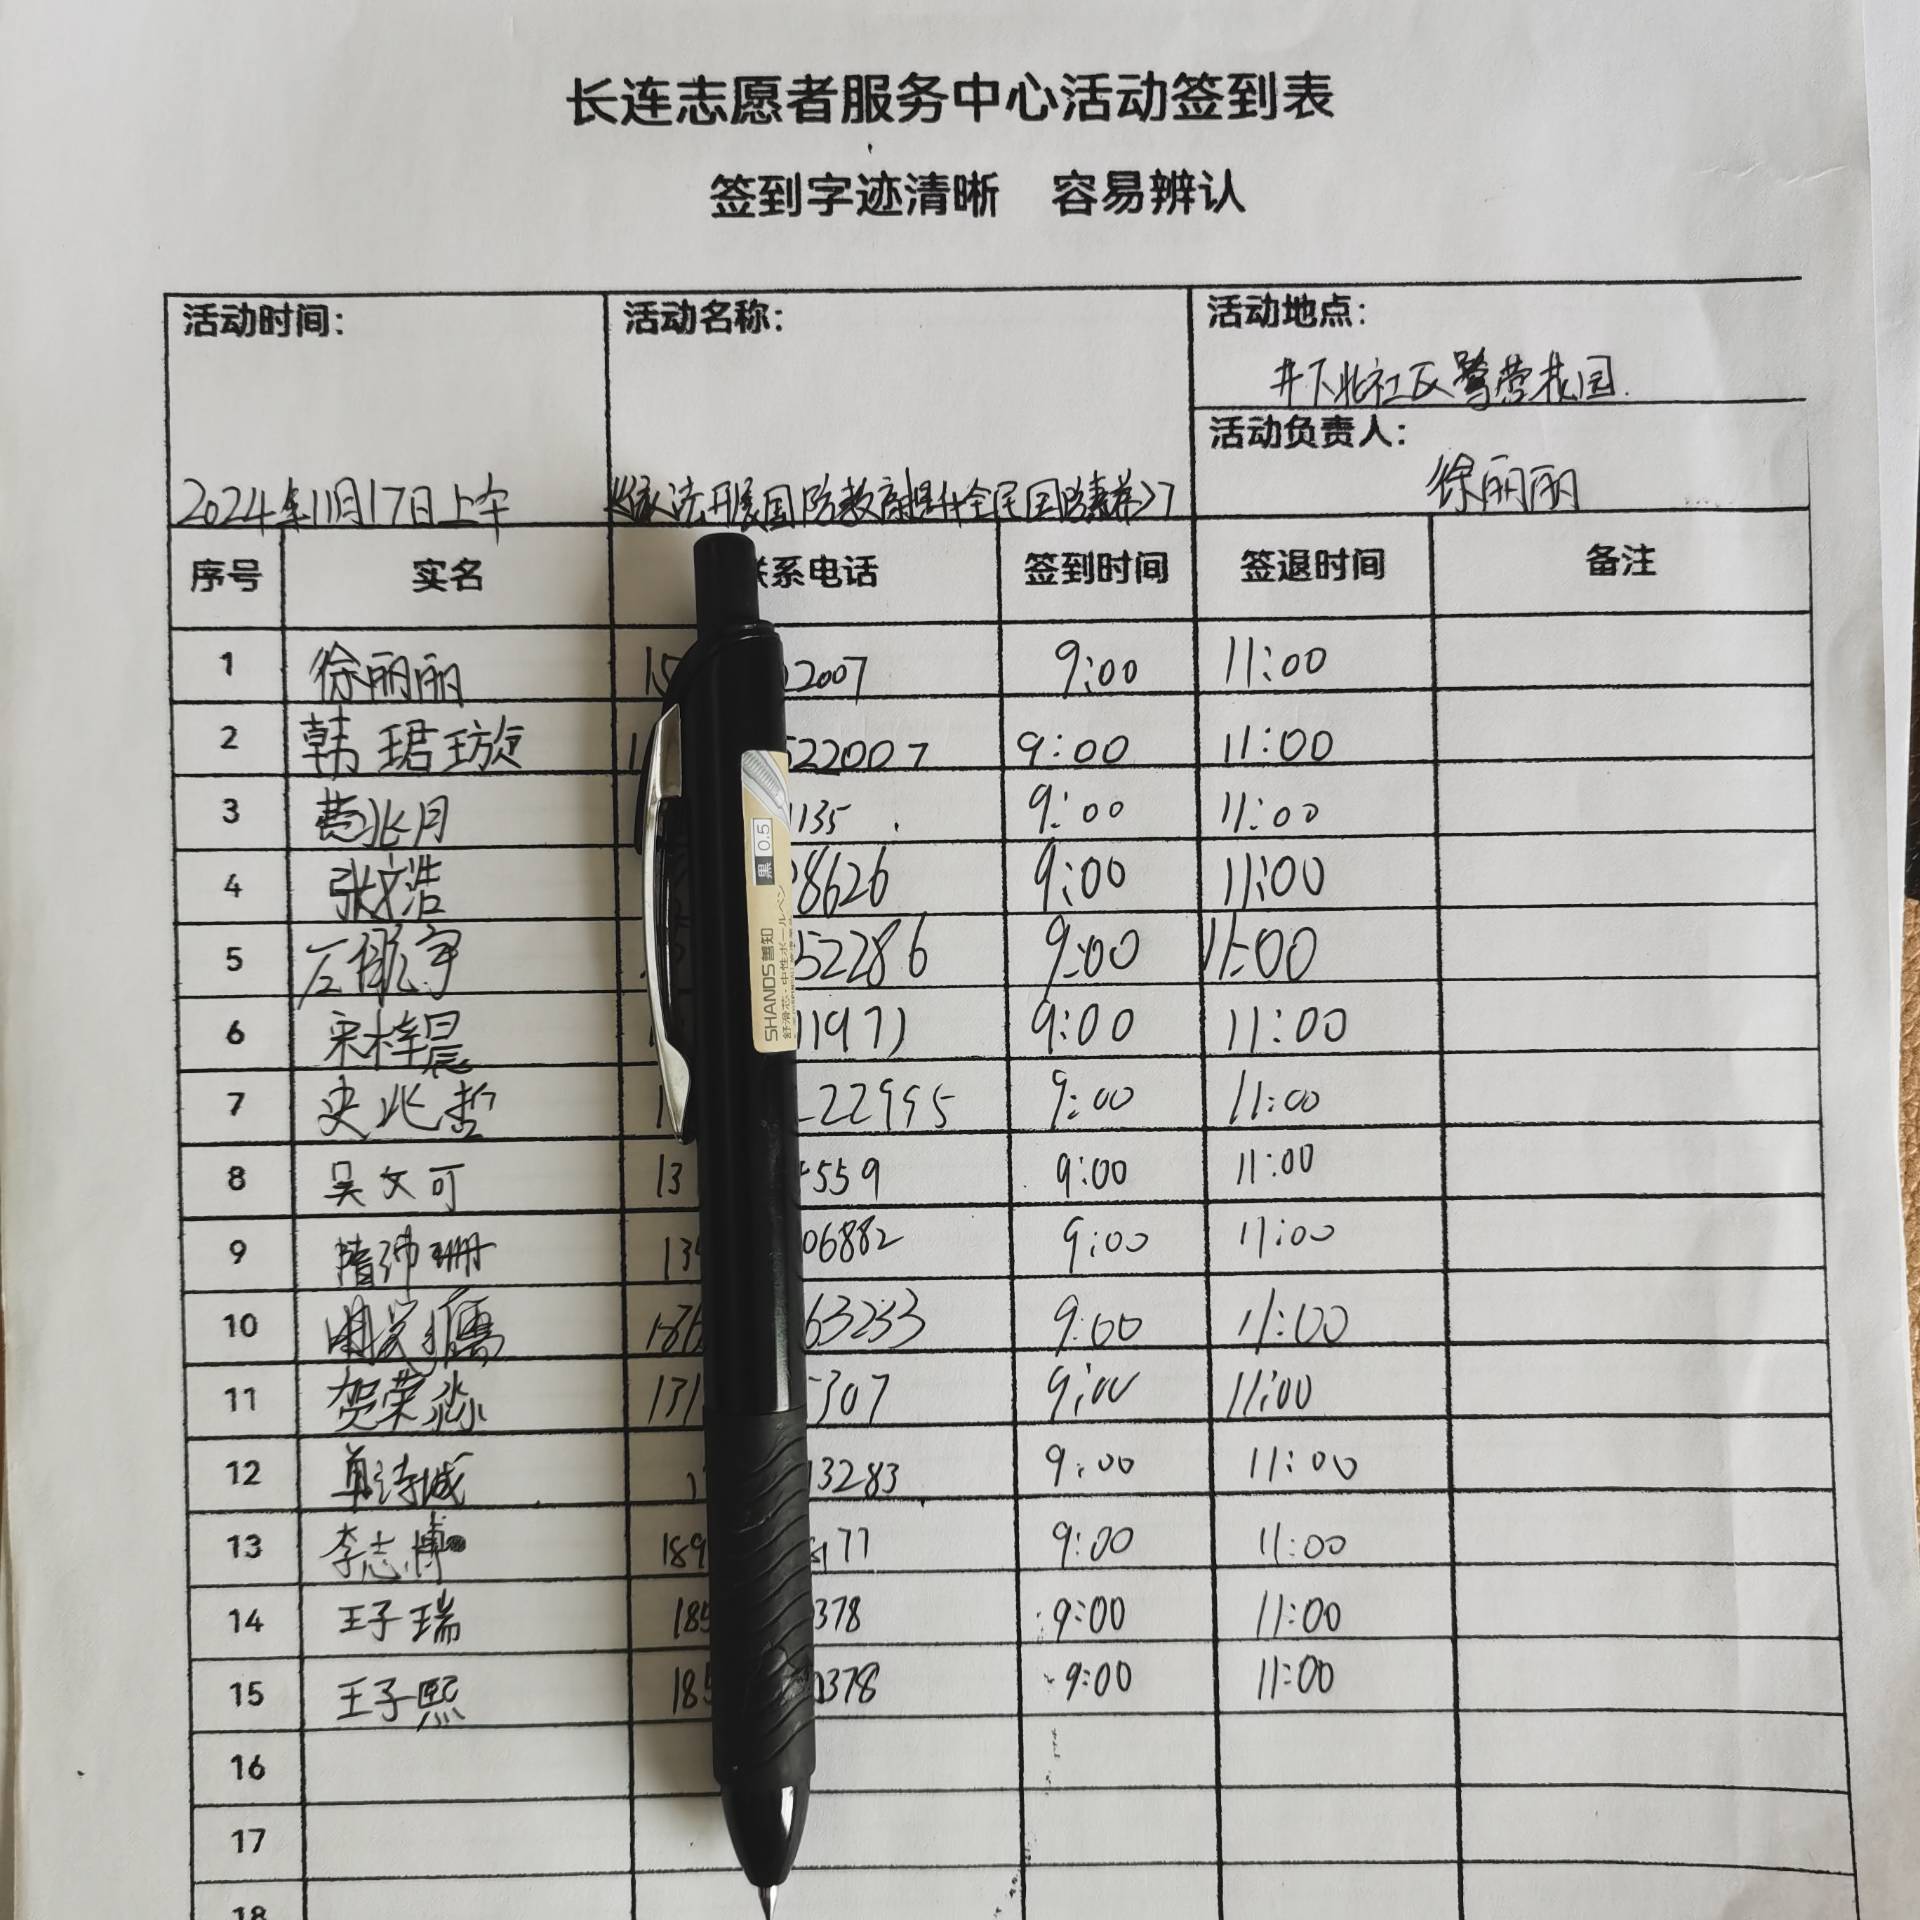 长连志愿者服务中心活动签到表
签到字迹清晰 容易辨认
活动时间: 活动名称: 活动地点:
井下北社区鹭营花园.
活动负责人:
2024年11月17日上午 《依法开展国防教育提升全民国防素养》 徐丽丽
序号 实名 联系电话 签到时间 签退时间 备注
1 徐丽丽 15 2007 9:00 11:00
2 韩珺璇 1 522007 9:00 11:00
3 月 1135 9:00 11:00
4 张文浩 8626 9:00 11:00
5 左 宇 52286 9:00 11:00
6 宋梓晨 11971 9:00 11:00
7 史兆哲 1 22995 9:00 11:00
8 吴文可 13 559 9:00 11:00
9 隋沛珊 13 06882 9:00 11:00
10 186 63233 9:00 11:00
11 贺荣淼 131 307 9:00 11:00
12 单诗城 1 13283 9:00 11:00
13 李志博 189 177 9:00 11:00
14 王子瑞 185 378 9:00 11:00
15 王子熙 185 0378 9:00 11:00
16
17
18
黑 0.5
SHANDS 善知
舒滑芯·中性ボールペン